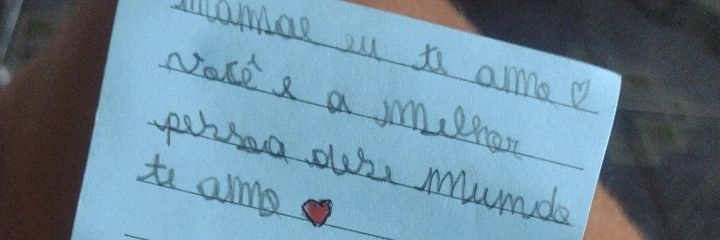 mamãe eu te amo ♡
você e a melhor
pessoa dese mundo
te amo ❤